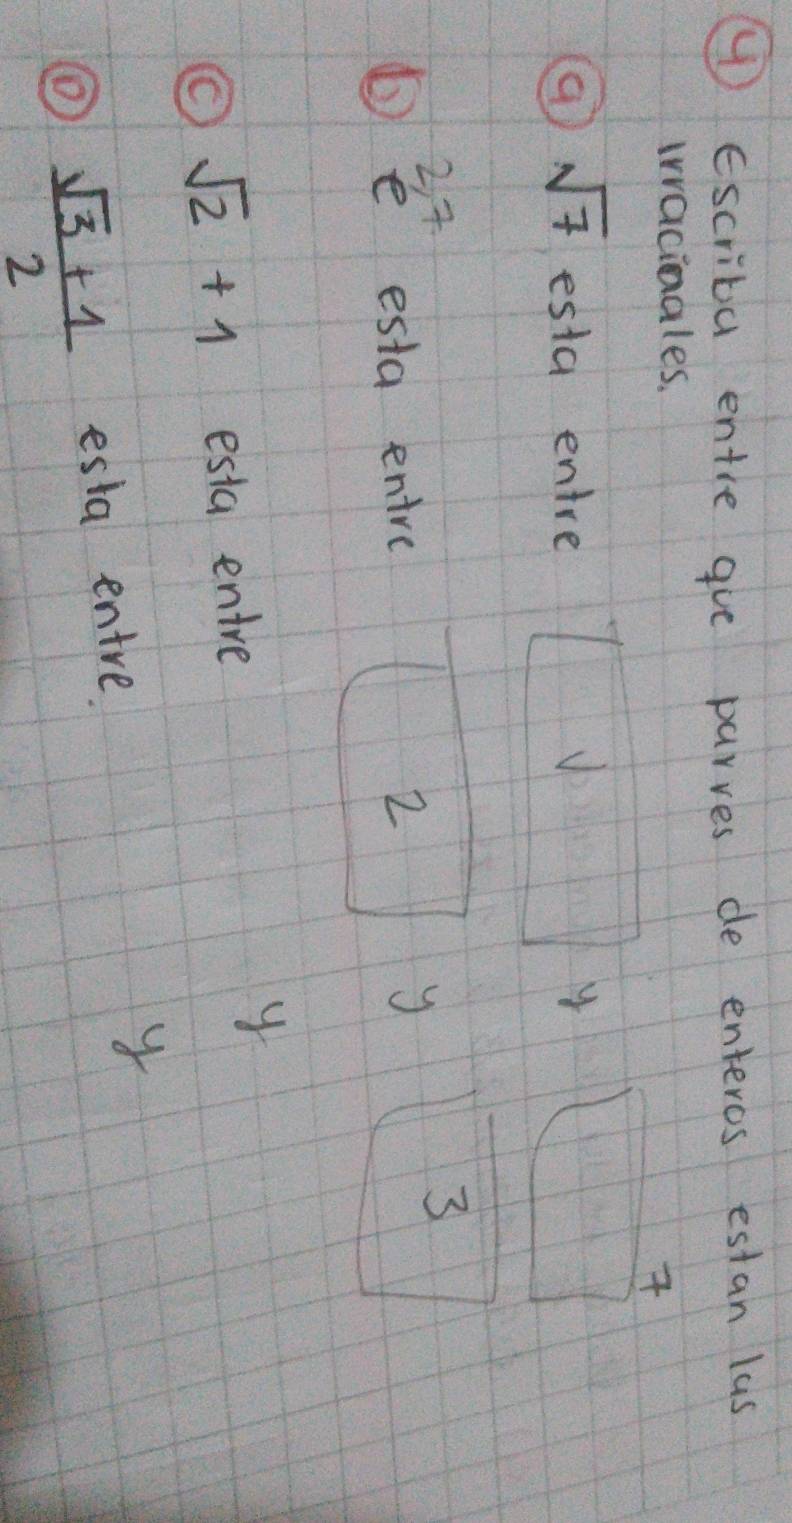 4 Escriba entre que parres de enteros estan las
irracionales.
a √7 esta entre √ y 7
b e 2,7 esta entre 2 y 3
c √2 + 1 esta entre y
D √3 + 1 esta entre. y
2